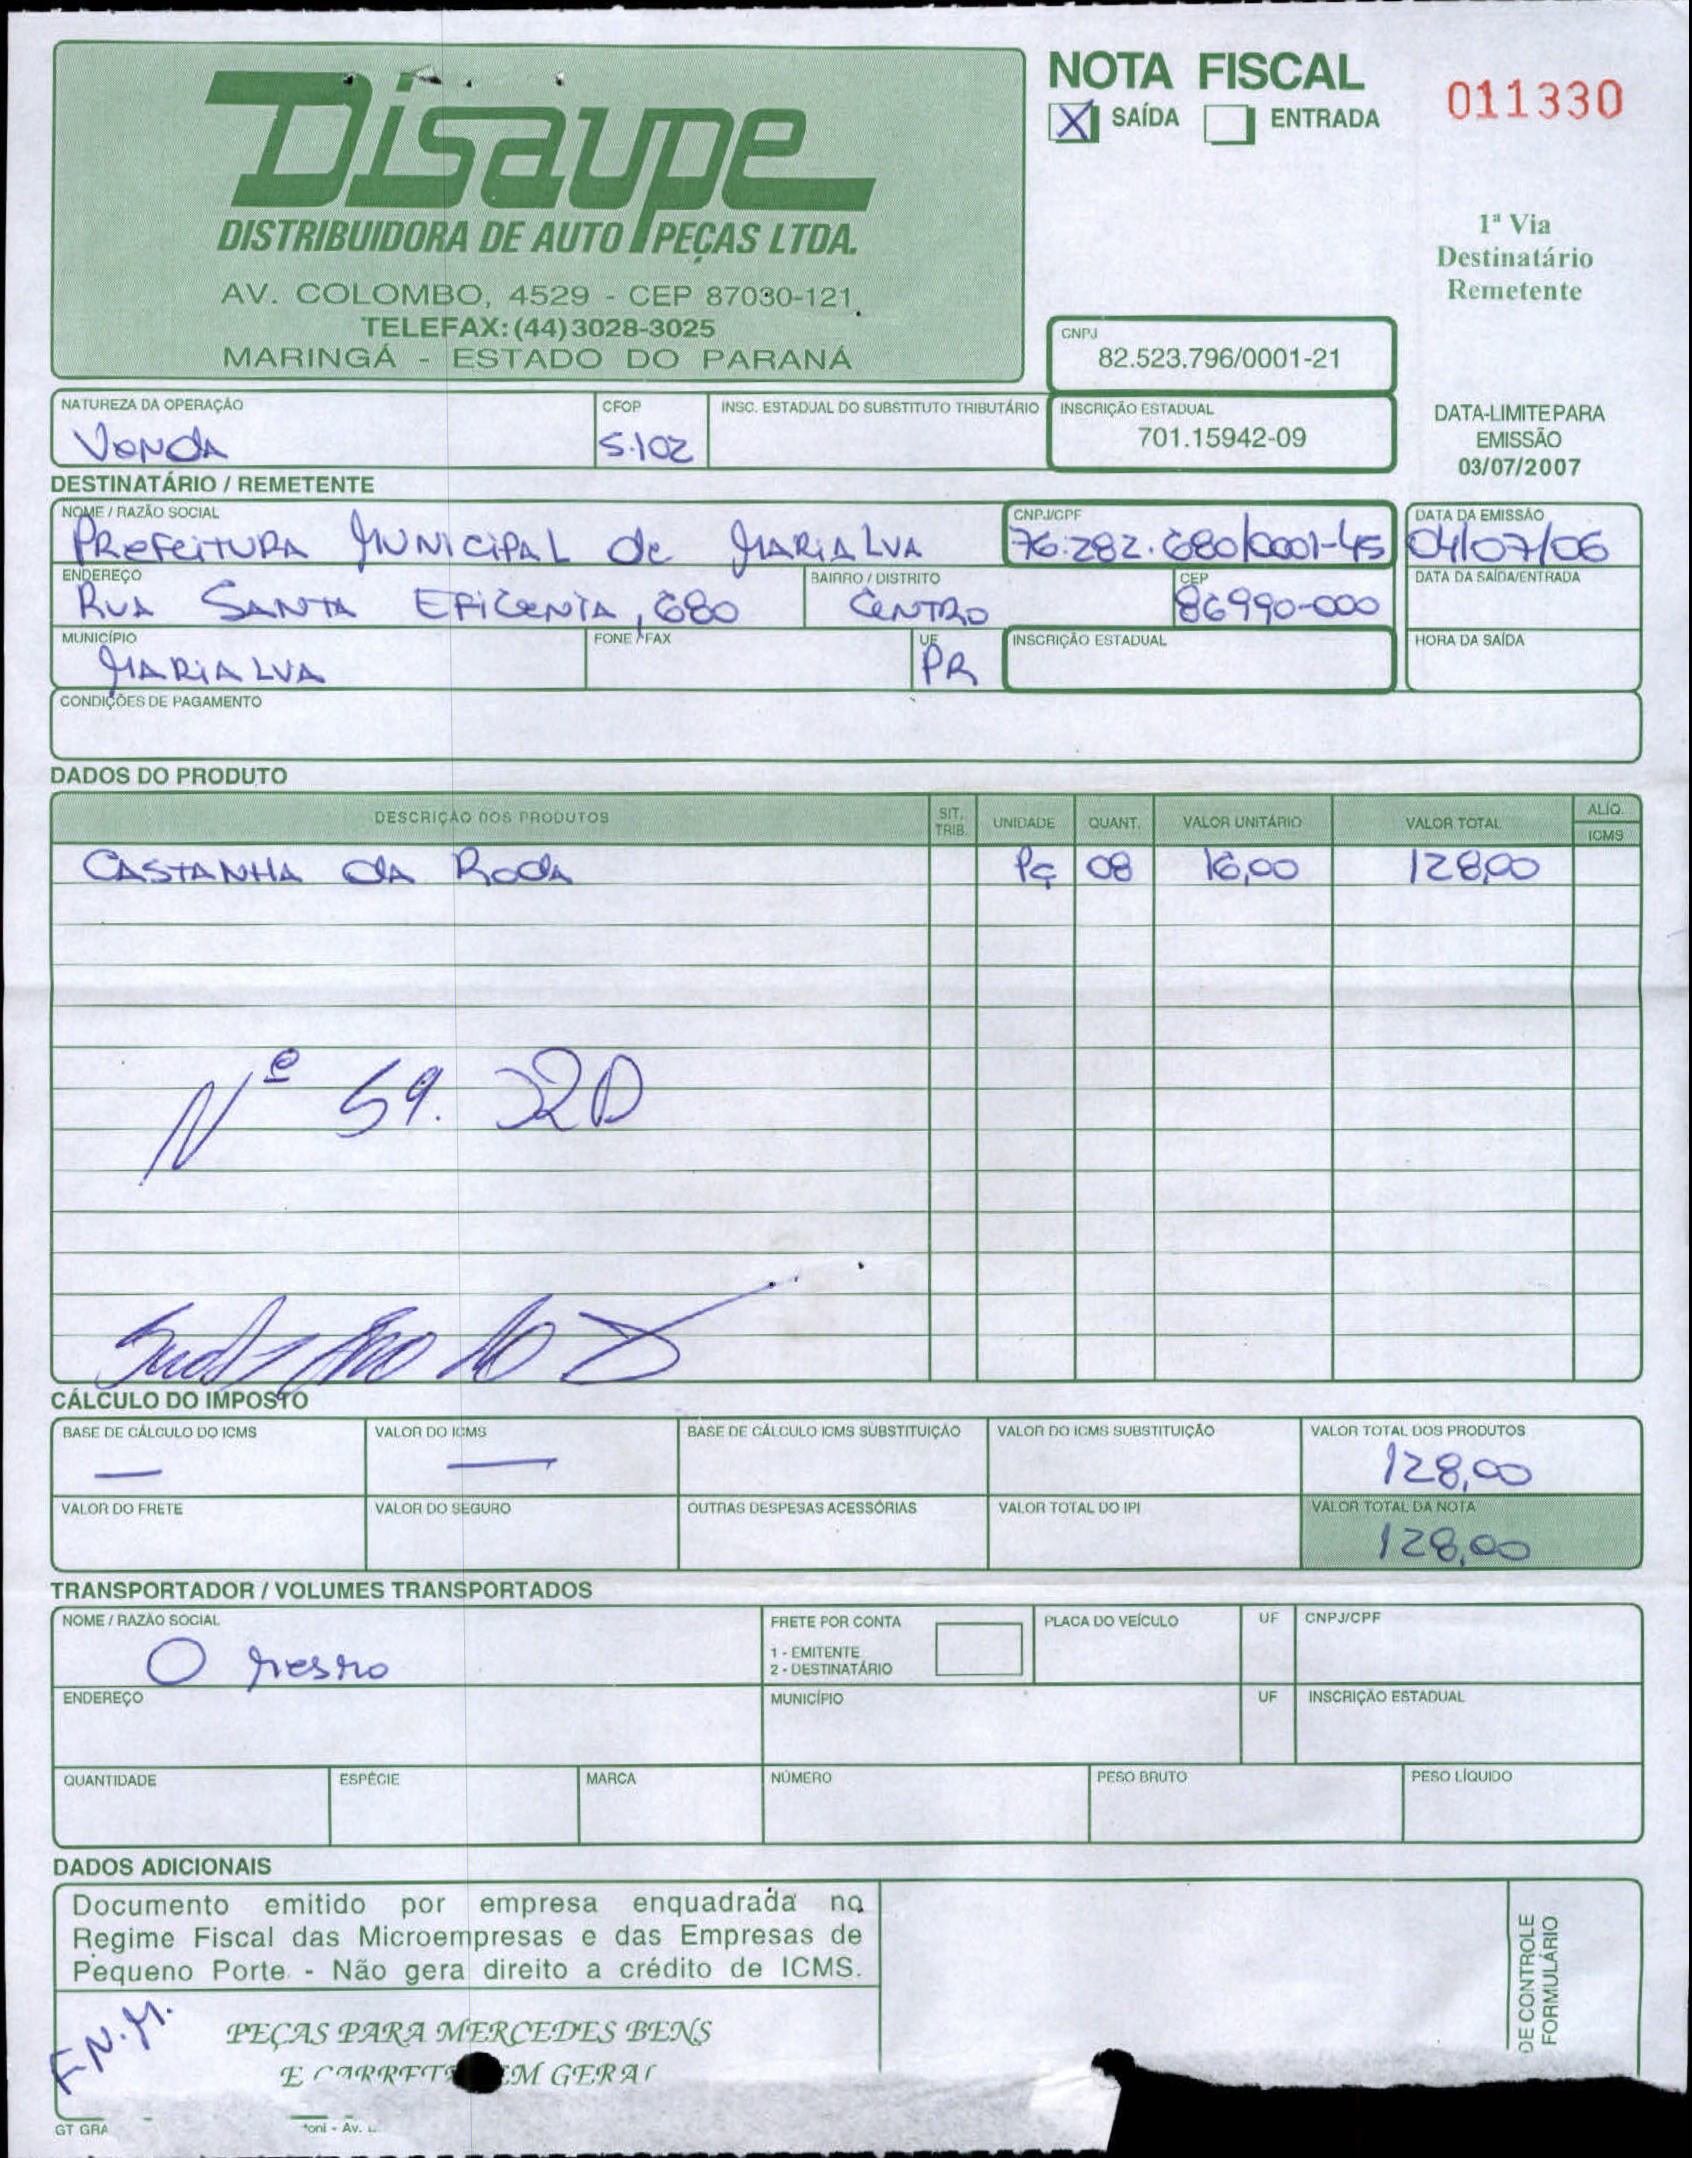 Disaupe
DISTRIBUIDORA DE AUTO PEÇAS LTDA.
AV. COLOMBO, 4529 - CEP 87030-121
TELEFAX: (44) 3028-3025
MARINGÁ - ESTADO DO PARANÁ
NOTA FISCAL
X SAÍDA ENTRADA
011330
1ª Via
Destinatário
Remetente
CNPJ
82.523.796/0001-21
NATUREZA DA OPERAÇÃO CFOP INSC. ESTADUAL DO SUBSTITUTO TRIBUTÁRIO INSCRIÇÃO ESTADUAL
VENDA 5.102 701.15942-09
DATA-LIMITE PARA
EMISSÃO
03/07/2007
DESTINATÁRIO / REMETENTE
NOME / RAZÃO SOCIAL CNPJ/CPF DATA DA EMISSÃO
PREFEITURA MUNICIPAL de MARIALVA 76.282.680/0001-45 04/07/06
ENDEREÇO BAIRRO / DISTRITO CEP DATA DA SAÍDA/ENTRADA
RUA SANTA EFIGENIA, 680 CENTRO 86990-000
MUNICÍPIO FONE / FAX UF INSCRIÇÃO ESTADUAL HORA DA SAÍDA
MARIALVA PR
CONDIÇÕES DE PAGAMENTO
DADOS DO PRODUTO
DESCRIÇÃO DOS PRODUTOS SIT. TRIB. UNIDADE QUANT. VALOR UNITÁRIO VALOR TOTAL ALIQ. ICMS
CASTANHA da Roda Pç 08 16,00 128,00
Nº 59.320
CÁLCULO DO IMPOSTO
BASE DE CÁLCULO DO ICMS VALOR DO ICMS BASE DE CÁLCULO ICMS SUBSTITUIÇÃO VALOR DO ICMS SUBSTITUIÇÃO VALOR TOTAL DOS PRODUTOS
— — 128,00
VALOR DO FRETE VALOR DO SEGURO OUTRAS DESPESAS ACESSÓRIAS VALOR TOTAL DO IPI VALOR TOTAL DA NOTA
128,00
TRANSPORTADOR / VOLUMES TRANSPORTADOS
NOME / RAZÃO SOCIAL FRETE POR CONTA PLACA DO VEÍCULO UF CNPJ/CPF
1 - EMITENTE
2 - DESTINATÁRIO
O mesmo
ENDEREÇO MUNICÍPIO UF INSCRIÇÃO ESTADUAL
QUANTIDADE ESPÉCIE MARCA NÚMERO PESO BRUTO PESO LÍQUIDO
DADOS ADICIONAIS
Documento emitido por empresa enquadrada no
Regime Fiscal das Microempresas e das Empresas de
Pequeno Porte - Não gera direito a crédito de ICMS.
F.N.M.
PEÇAS PARA MERCEDES BENS
E EM GERAL
DE CONTROLE
FORMULÁRIO
GT GRA
toni - Av.